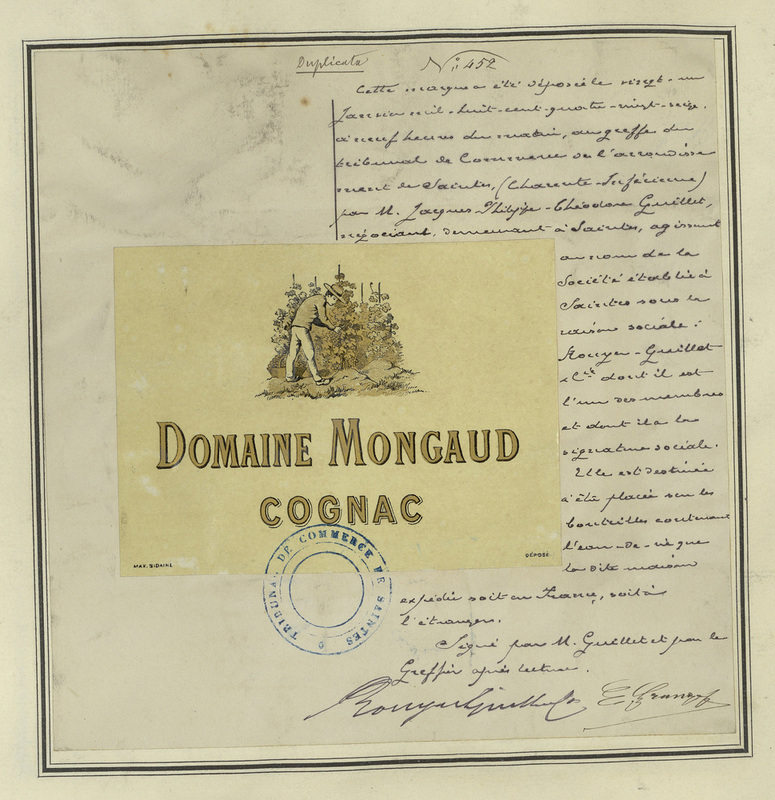 Duplicata
N° 452
Cette marque a été déposée le vingt-un
Janvier mil-huit-cent-quatre-vingt-seize.
à neuf heures du matin, au greffe du
tribunal de Commerce de l'arrondisse
ment de Saintes, (Charente-Inférieure)
par M. Jacques-Philippe-Théodore Guillet,
négociant, demeurant à Saintes, agissant
au nom de la
Société établie à
Saintes sous la
raison sociale:
Rouyer-Guillet
& Cie dont il est
l'un des membres
et dont il a la
signature sociale.
Elle est destinée
à être placée sur les
bouteilles contenant
l'eau-de-vie que
la dite maison
expédie soit en France, soit à
l'étranger.
Signé par M. Guillet et par le
Greffier après lecture.
Rouyer Guillet & Co
DOMAINE MONGAUD
COGNAC
MAX. SIDAINE
DÉPOSÉ
TRIBUNAL DE COMMERCE DE SAINTES